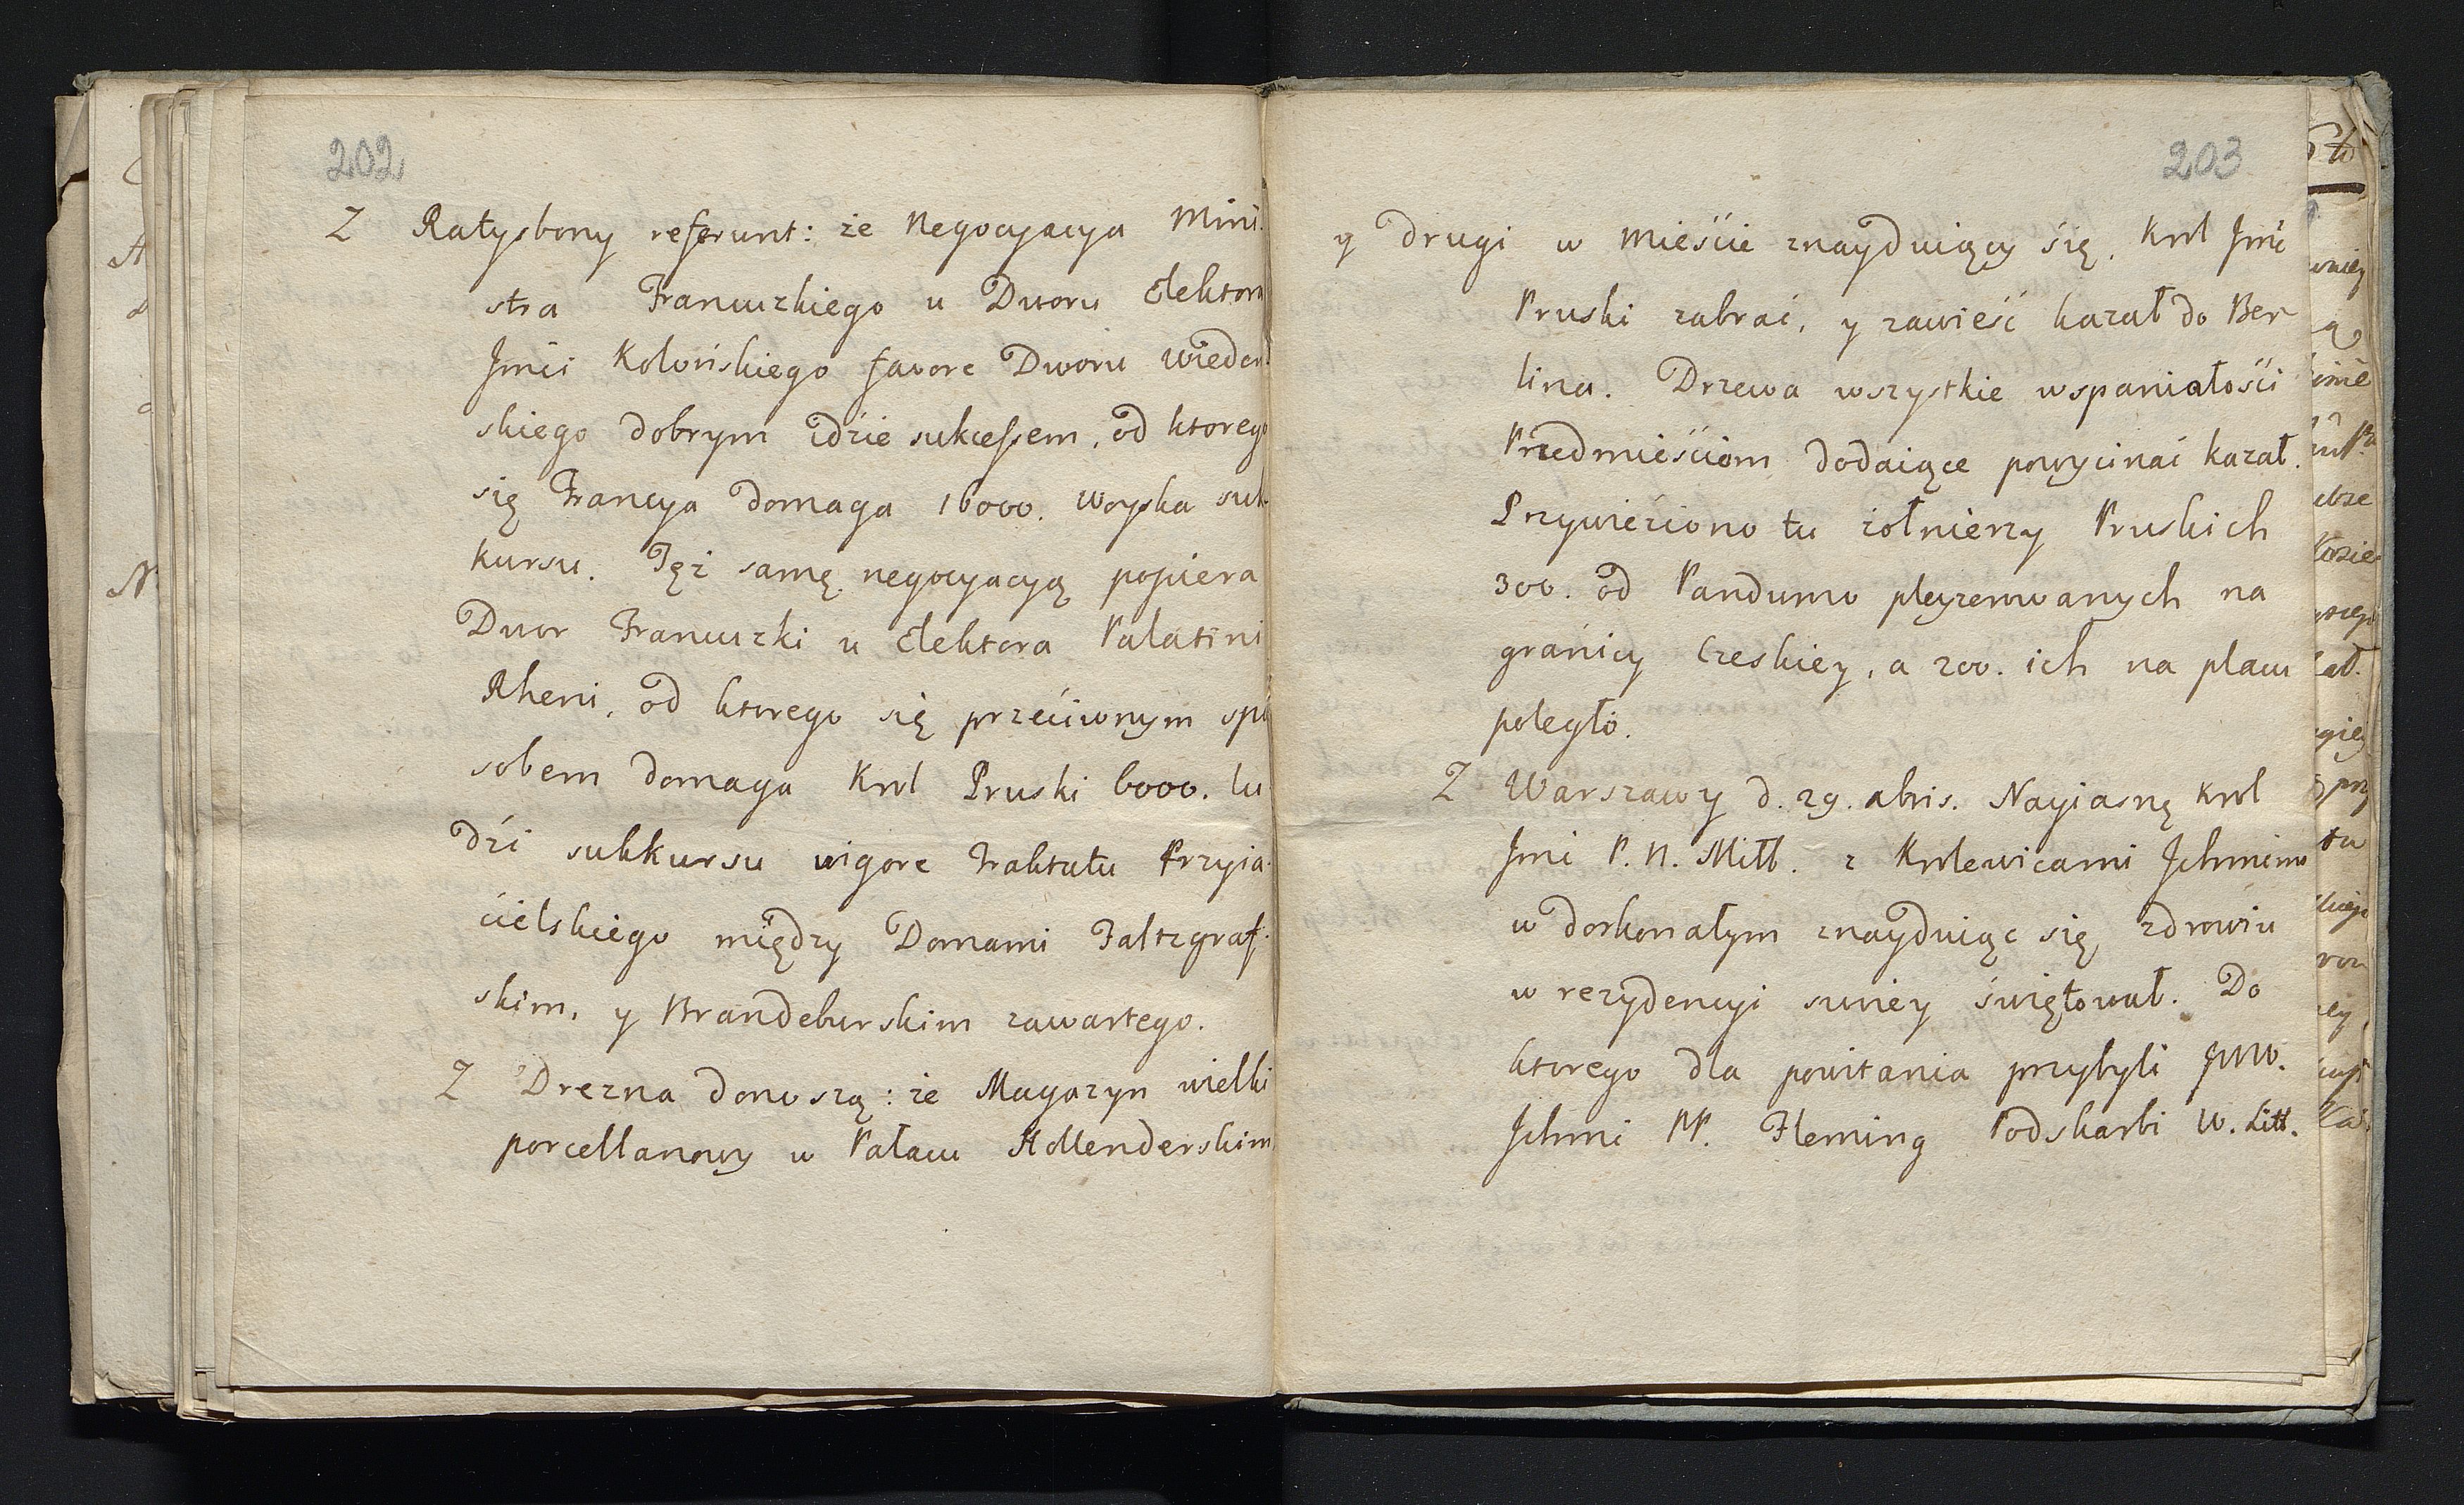 202
Z Ratysbony referunt: że Negocyacya Mini-
stra Francuzkiego u Dworu Elektora
Jmći Kolońskiego favore Dworu wieden-
skiego dobrym idźie sukcessem, od ktorego
się Francya domaga 16000. woyska suk-
kursu. Tęż samę negocyacyą popiera
Dwor Francuzki u Elektora Palatini
Rheni, od ktorego się przećiwnym spo
sobem domaga Krol Pruski 6000. lu
dźi sukkursu vigore Traktatu Przyia-
ćielskiego między Domami Faltzgraf-
skim, y Brandeburskim zawartego.
Z Drezna donoszą: że Magazyn wielki
porcellanowy w Pałacu Hollenderskim
203
y drugi w mieśćie znayduiący się, Krol Jmć
Pruski zabrać, y zawieść kazał do Ber
lina. Drzewa wszystkie wspaniałośći
Przedmieśćiom dodaiące powycinać kazał.
Przywieźiono tu żołnierzy Pruskich
300. od Pandurow pleyzerowanych na
granicy Czeskiey, a 200. ich na placu
poległo.
Z Warszawy d. 29. Xbris. Nayiasny Krol
Jmć P. N. Miłł. z Krolewicami Jchmćmi
w doskonałym znayduiąc się zdrowiu
w rezydencyi swoiey świętował. Do
ktorego dla powitania przybyli JWW.
Jchmć PP. Fleming Podskarbi W. Litt.